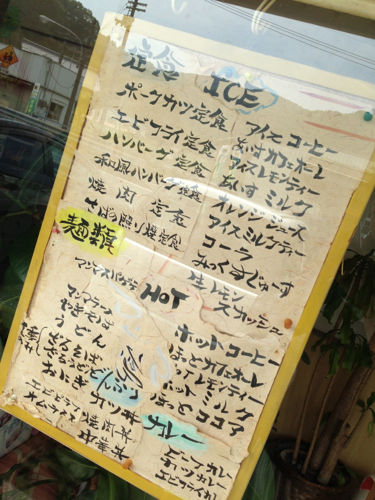 定食
ポークカツ定食
エビフライ定食
ハンバーグ定食
和風ハンバーグ定食
焼肉定食
さば照り焼定食
麺類
うどん
ざるそば
ざるうどん
おにぎり
どんぶり
カツ丼
焼肉丼
中華丼
ICE
アイスコーヒー
あいすカフェオーレ
アイスレモンティー
あいすミルク
オレンジジュース
アイスミルクティー
コーラ
みっくすじゅーす
生レモン
スカッシュ
HOT
ホットコーヒー
ほっとカフェオーレ
レモンティー
ホットミルク
ほっとココア
カレー
ビーフカレー
カツカレー
エビフライカレー